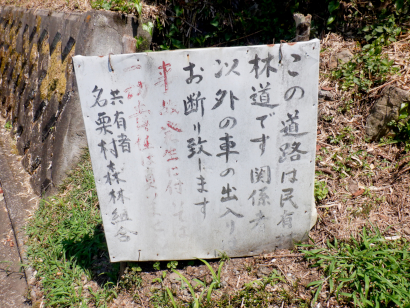 この道路は民有
林道です関係者
以外の車の出入り
お断り致します
事故発生に付ては
一切責任は負いません
共有者
名栗村森林組合